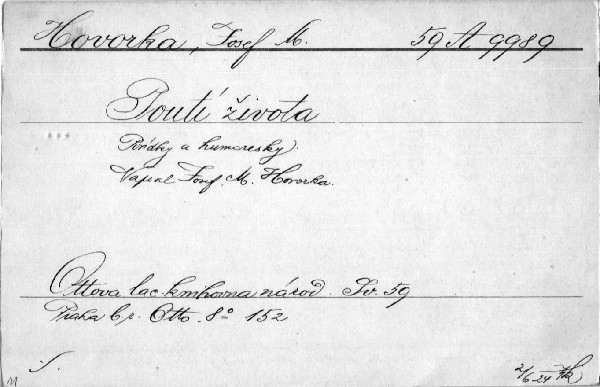 Hovorka, Josef M. 59 A 9989
Poutí života
Povídky a humoresky.
Napsal Josef M. Hovorka.
Ottova lac. knihovna národ. Sv. 59
Praha b. r. Otto. 8° 152